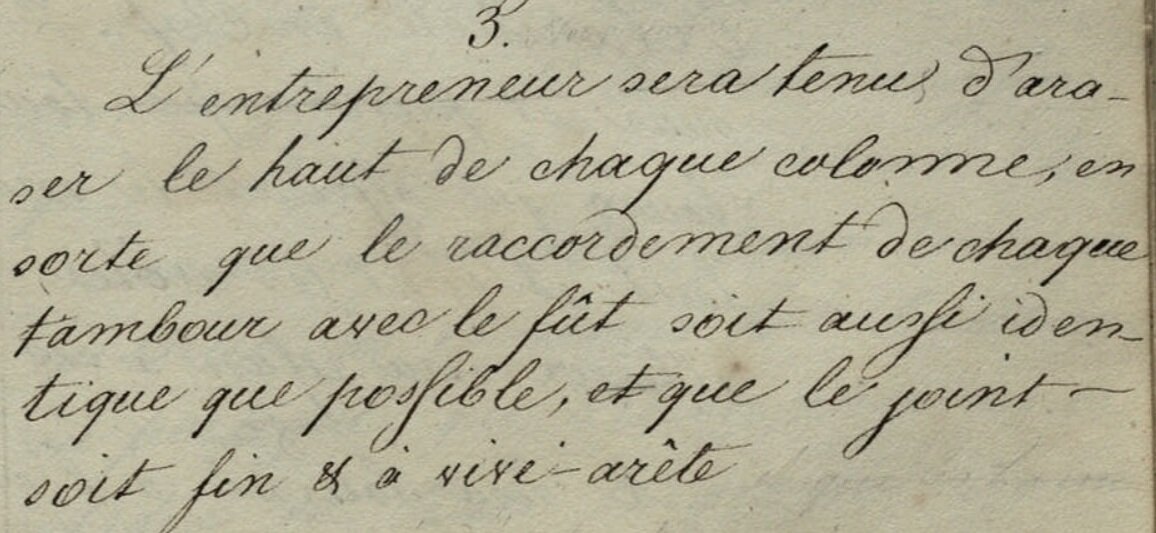 3.
L'entrepreneur sera tenu, d'ara-
ser le haut de chaque colonne, en
sorte que le raccordement de chaque
tambour avec le fût soit aussi iden-
tique que possible, et que le joint -
soit fin & à vive-arête